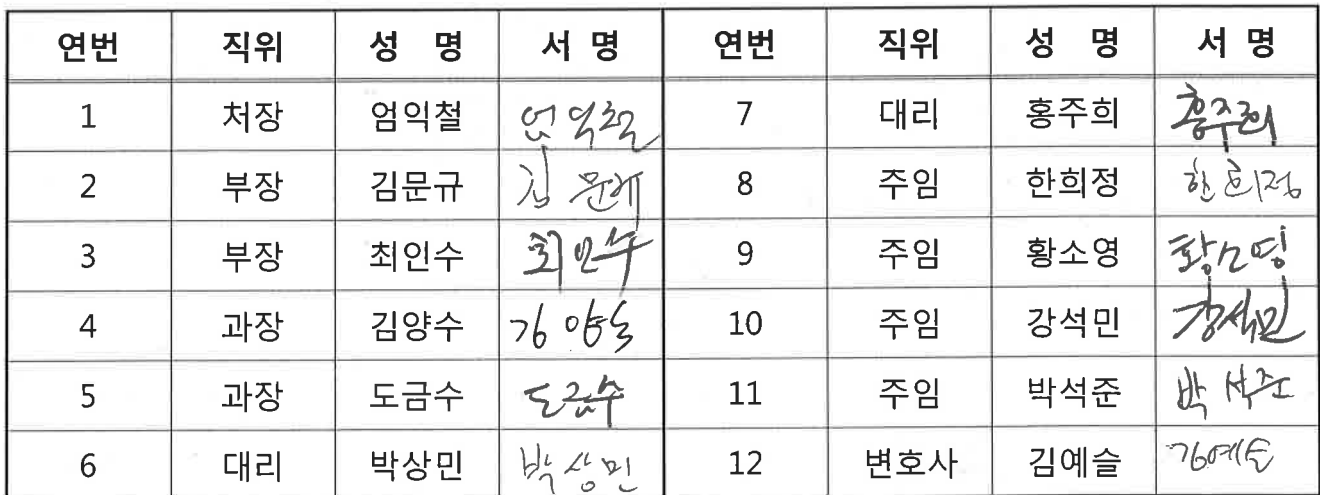 연번 직위 성 명 서 명 연번 직위 성 명 서 명
1 처장 엄익철 엄익철 7 대리 홍주희 홍주희
2 부장 김문규 김문규 8 주임 한희정 한희정
3 부장 최인수 최인수 9 주임 황소영 황소영
4 과장 김양수 김양수 10 주임 강석민 강석민
5 과장 도금수 도금수 11 주임 박석준 박석준
6 대리 박상민 박상민 12 변호사 김예슬 김예슬